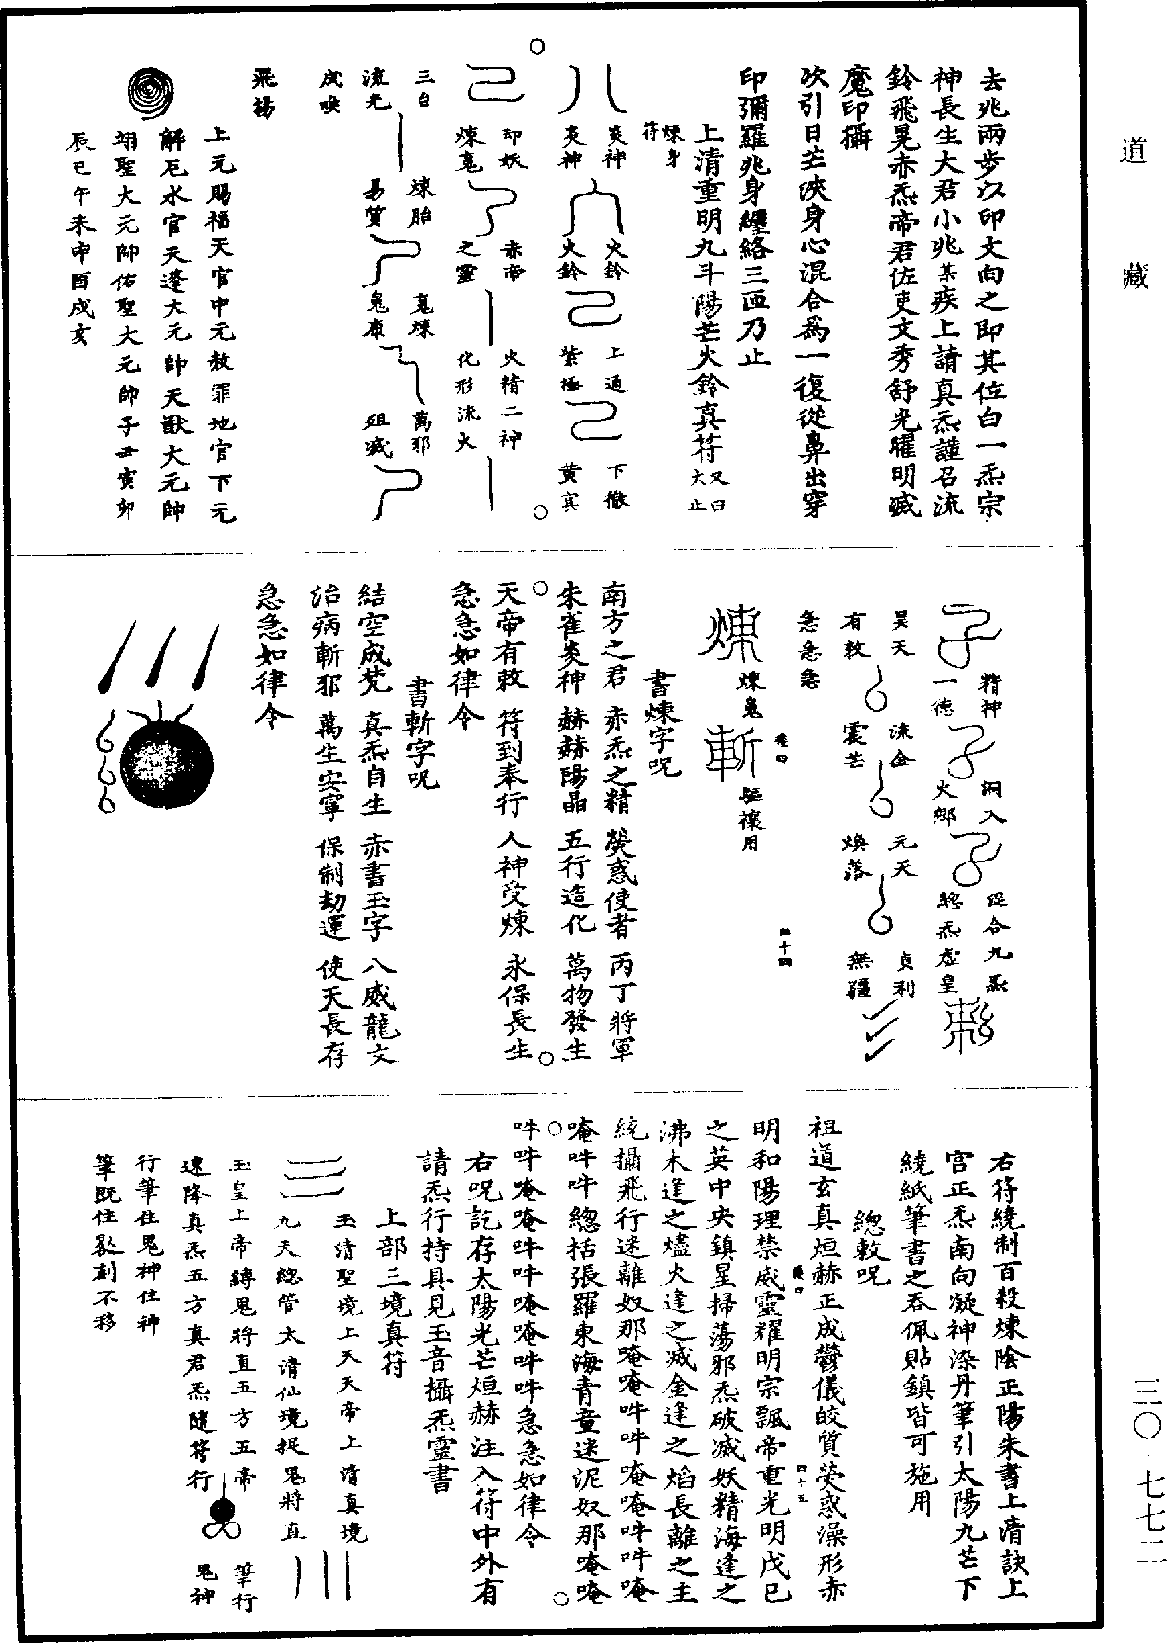 道藏
三〇 七七二
去兆兩步以印文向之即其位白一炁宗
神長生大君小兆某疾上請真炁謹召流
鈴飛晃赤炁帝君佐吏文秀舒光曜明滅
魔印攝
次引日芒浹身心混合爲一復從鼻出穿
印彌羅兆身纏絡三匝乃止
上清重明九斗陽芒火鈴真符又曰大止
煉身符
炎神 火鈴 上通 下徹
炎神 火鈴 紫極 黃真
却妖 赤帝 火精二神
煉鬼 之靈 化形流火
三台 煉胎 鬼煉 萬邪
流光 易質 鬼康 殂滅
成喚
飛揚
上元賜福天官中元赦罪地官下元
解厄水官天蓬大元帥天猷大元帥
翊聖大元帥佑聖大元帥子丑寅卯
辰巳午未申酉戌亥
精神 洞入 促合九炁
一德 火鄉 總炁虛皇
昊天 流金 元天 貞利
有敕 震芒 煥落 無疆
急急急
煉 煉鬼 斬 驅禳用
卷四
四十四
書煉字呪
南方之君 赤炁之精 熒惑使者 丙丁將軍
朱雀炎神 赫赫陽晶 五行造化 萬物發生
天帝有敕 符到奉行 人神受煉 永保長生
急急如律令
書斬字呪
結空成梵 真炁自生 赤書玉字 八威龍文
治病斬邪 萬生安寧 保制劫運 使天長存
急急如律令
右符統制百殺煉陰正陽朱書上清訣上
宮正炁南向凝神染丹筆引太陽九芒下
繞紙筆書之吞佩貼鎮皆可施用
總敕呪
祖道玄真烜赫正成鬱儀皎質熒惑澡形赤
四十五
明和陽理禁威靈耀明宗飄帝重光明戊己
之英中央鎮星掃蕩邪炁破滅妖精海逢之
沸木逢之燼火逢之滅金逢之焰長離之主
統攝飛行迷離奴那唵唵吽吽唵唵吽吽唵
唵吽吽總括張羅東海青童迷泥奴那唵唵
吽吽唵唵吽吽唵唵吽吽急急如律令
右呪訖存太陽光芒烜赫注入符中外有
請炁行持具見玉音攝炁靈書
上部三境真符
玉清聖境上天天帝上清真境
九天總管太清仙境捉鬼將直
玉皇上帝縛鬼將直五方五帝
速降真炁五方真君炁隨符行
筆行
鬼神
行筆住鬼神住神
筆既住歘刻不移